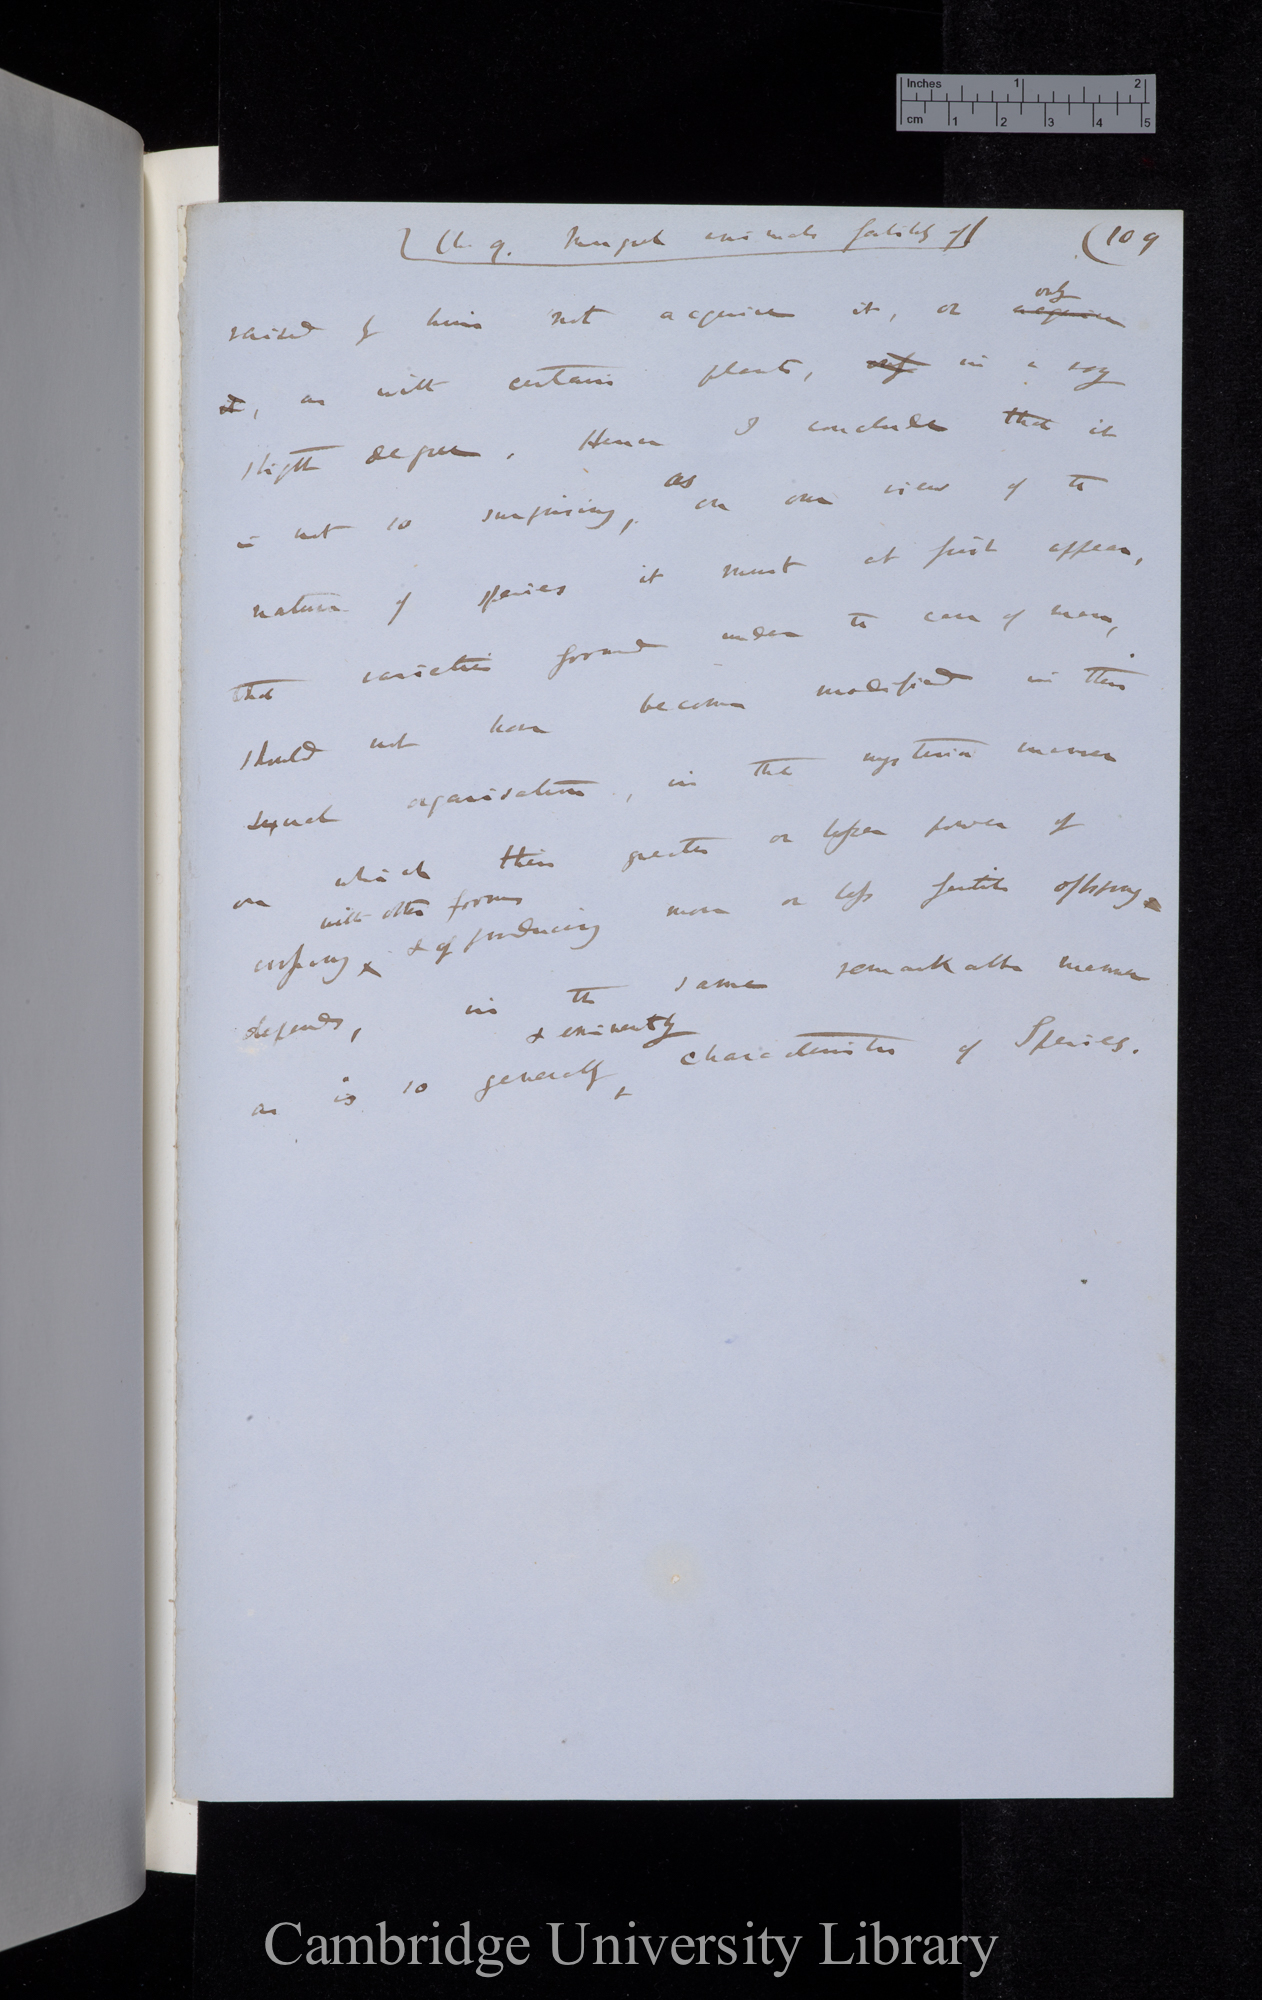 Inches 1 2
cm 1 2 3 4 5
Ch. 9. Mongrel animals fertility of
(109
raised by him not acquire it, or only acquire
it, as with certain plants, only in a very
slight degree. Hence I conclude that it
is not so surprising, as on our view of the
nature of species it must at first appear,
that varieties formed under the care of man,
should not have become modified in their
sexual organisation, in that mysterious manner
on which their greater or lesser power of
crossing with other forms & of producing more or less fertile offspring
depends, in the same remarkable manner
as is so generally & eminently characteristic of Species.
Cambridge University Library